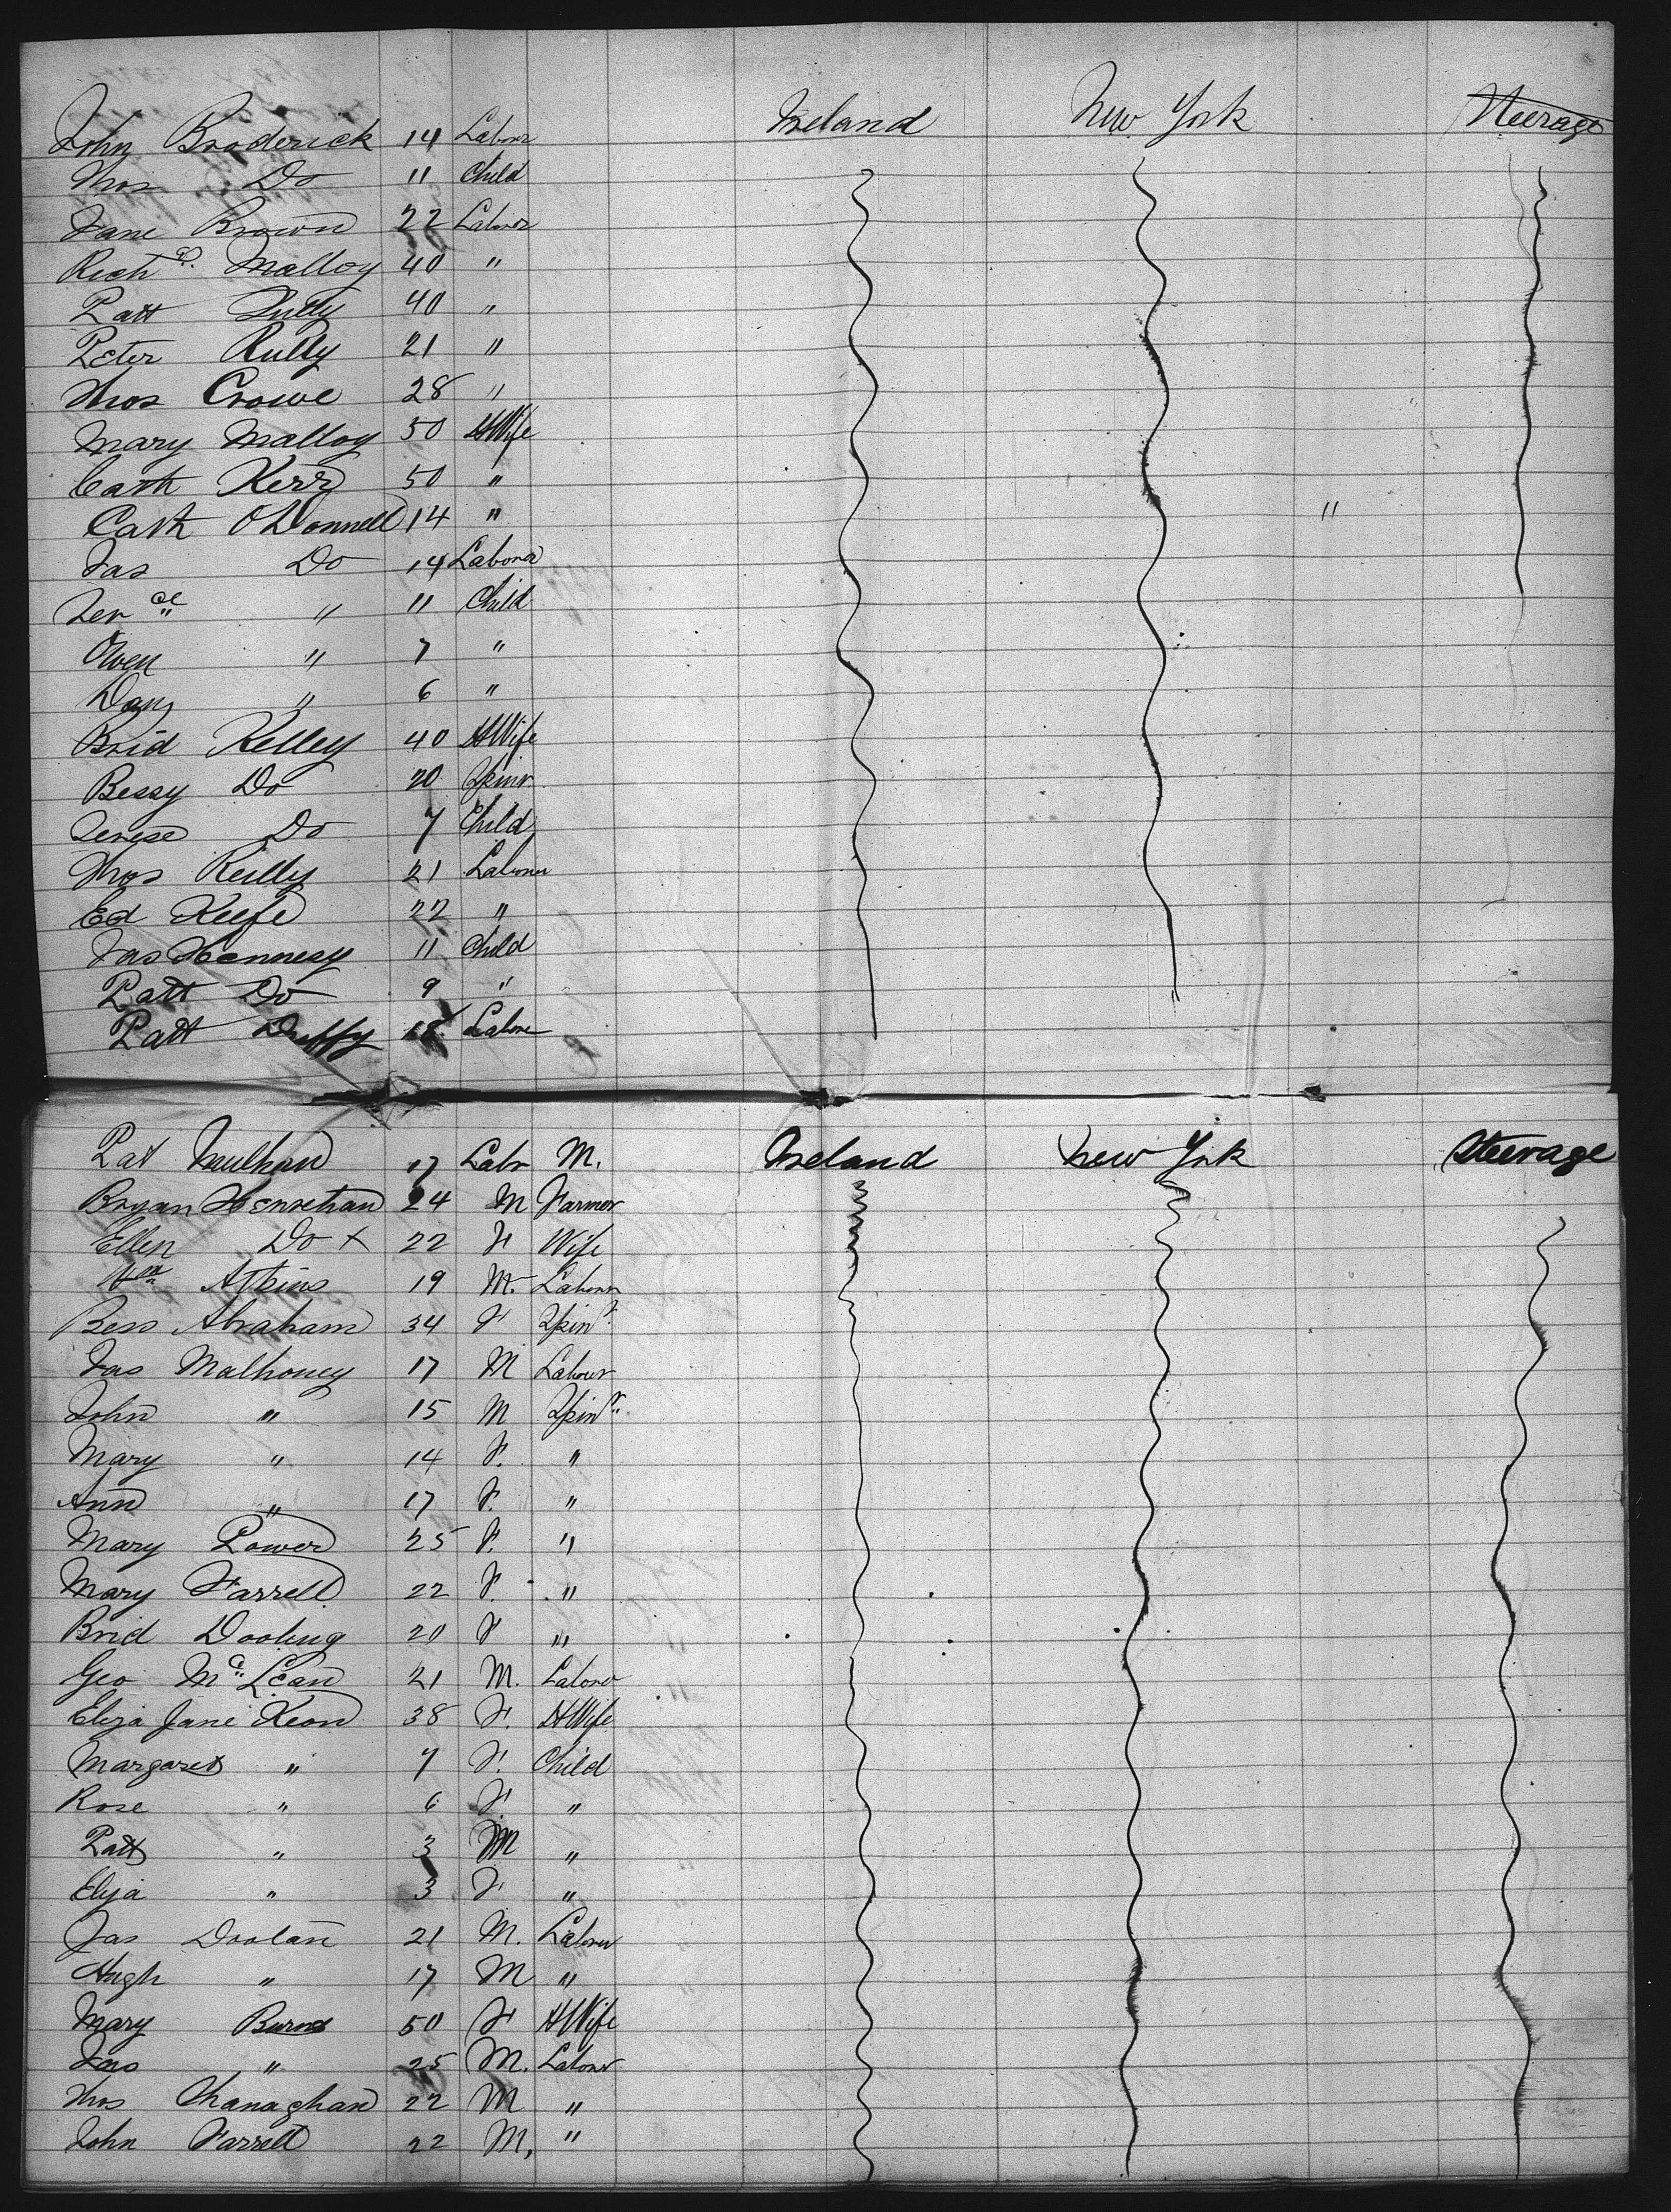 John Broderick 14 Labor Ireland New York Steerage
Thos Do 11 Child
Jane Brown 22 Labor
Richd. Malloy 40 "
Patt 40 "
Peter 21 "
Thos Crowe 28 "
Mary Malloy 50 HWife
Cath Kerr 50 "
Cath O'Donnell 14 " "
Jas Do 14 Labora
" 11 Child
Owen " 7 "
Dan " 6 "
Brid Kelley 40 HWife
Bessy Do 20 Spinr
Terese Do 7 Child
Thos Reilly 21 Laborer
Ed Keefe 22 "
Jas Hennesy 11 Child
Patt Do 9 "
Patt Duffy 18 Labor
Pat 17 Labr M. Ireland New York Steerage
Bryan Henrehan 24 M Farmer
Ellen Do X 22 F Wife
Wm Atkins 19 M. Laborer
Bess Abraham 34 F Spinr.
Jas Malhoney 17 M Labour
John " 15 M Spinr.
Mary " 14 F. "
Ann " 17 F. "
Mary Power 25 F. "
Mary Farrell 22 F. "
Brid Dooling 20 F "
Geo Mc Lean 21 M. Labor
Eliza Jane Keon 38 F. HWife
Margaret " 7 F. Child
Rose " 6 F. "
Patt " 3 M "
Eliza " 3 F "
Jas Doolan 21 M. Laborer
Hugh " 17 M "
Mary Burns 50 F HWife
Jas " 25 M. Labour
Thos Shanaghan 22 M "
John Farrell 22 M. "